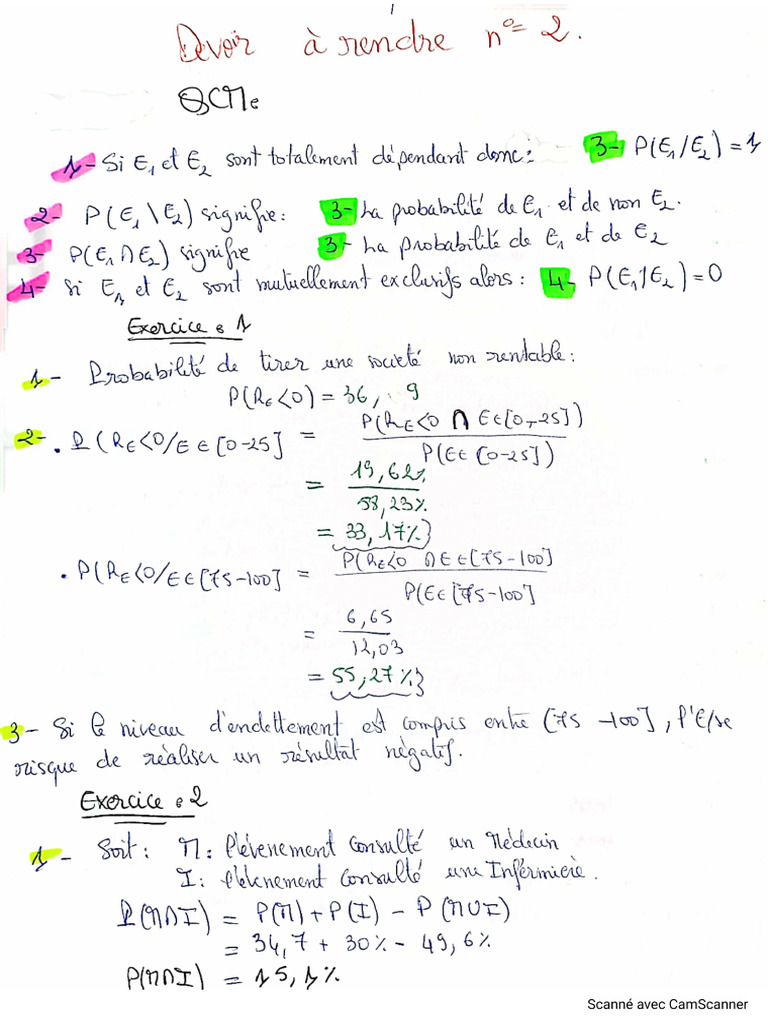 1
Devoir à rendre n°= 2.
QCM :
1- Si E₁ et E₂ sont totalement dépendant donc : 3- P(E₁/E₂) = 1
2- P(E₁\E₂) signifie : 3- La probabilité de E₁ et de non E₂.
3- P(E₁∩E₂) signifie 3- La probabilité de E₁ et de E₂
4- Si E₁ et E₂ sont mutuellement exclusifs alors : 4- P(E₁/E₂) = 0
Exercice : 1
1- Probabilité de tirer une société non rentable :
P(RE<0) = 36, 9
2- . P(RE<0/E∈[0-25] = P(RE<0 ∩ E∈[0-25]) / P(E∈[0-25])
= 19,62% / 58,23%
= 33,17%}
. P(RE<0/E∈[75-100] = P(RE<0 ∩ E∈[75-100] / P(E∈[75-100]
= 6,65 / 12,03
= 55,27%}
3- Si le niveau d'endettement est compris entre [75-100], l'E/se
risque de réaliser un résultat négatif.
Exercice : 2
1- Soit : M : l'évènement consulté un Médecin
I : l'évènement consulté une Infirmière.
P(M∩I) = P(M) + P(I) - P(M∪I)
= 34,7 + 30% - 49,6%
P(M∩I) = 15,1%
Scanné avec CamScanner